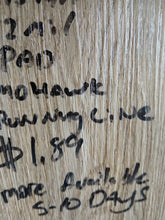 2 mil
PAD
MOHAWK
RUNNING LINE
$1.89
more Available
5-10 DAYS